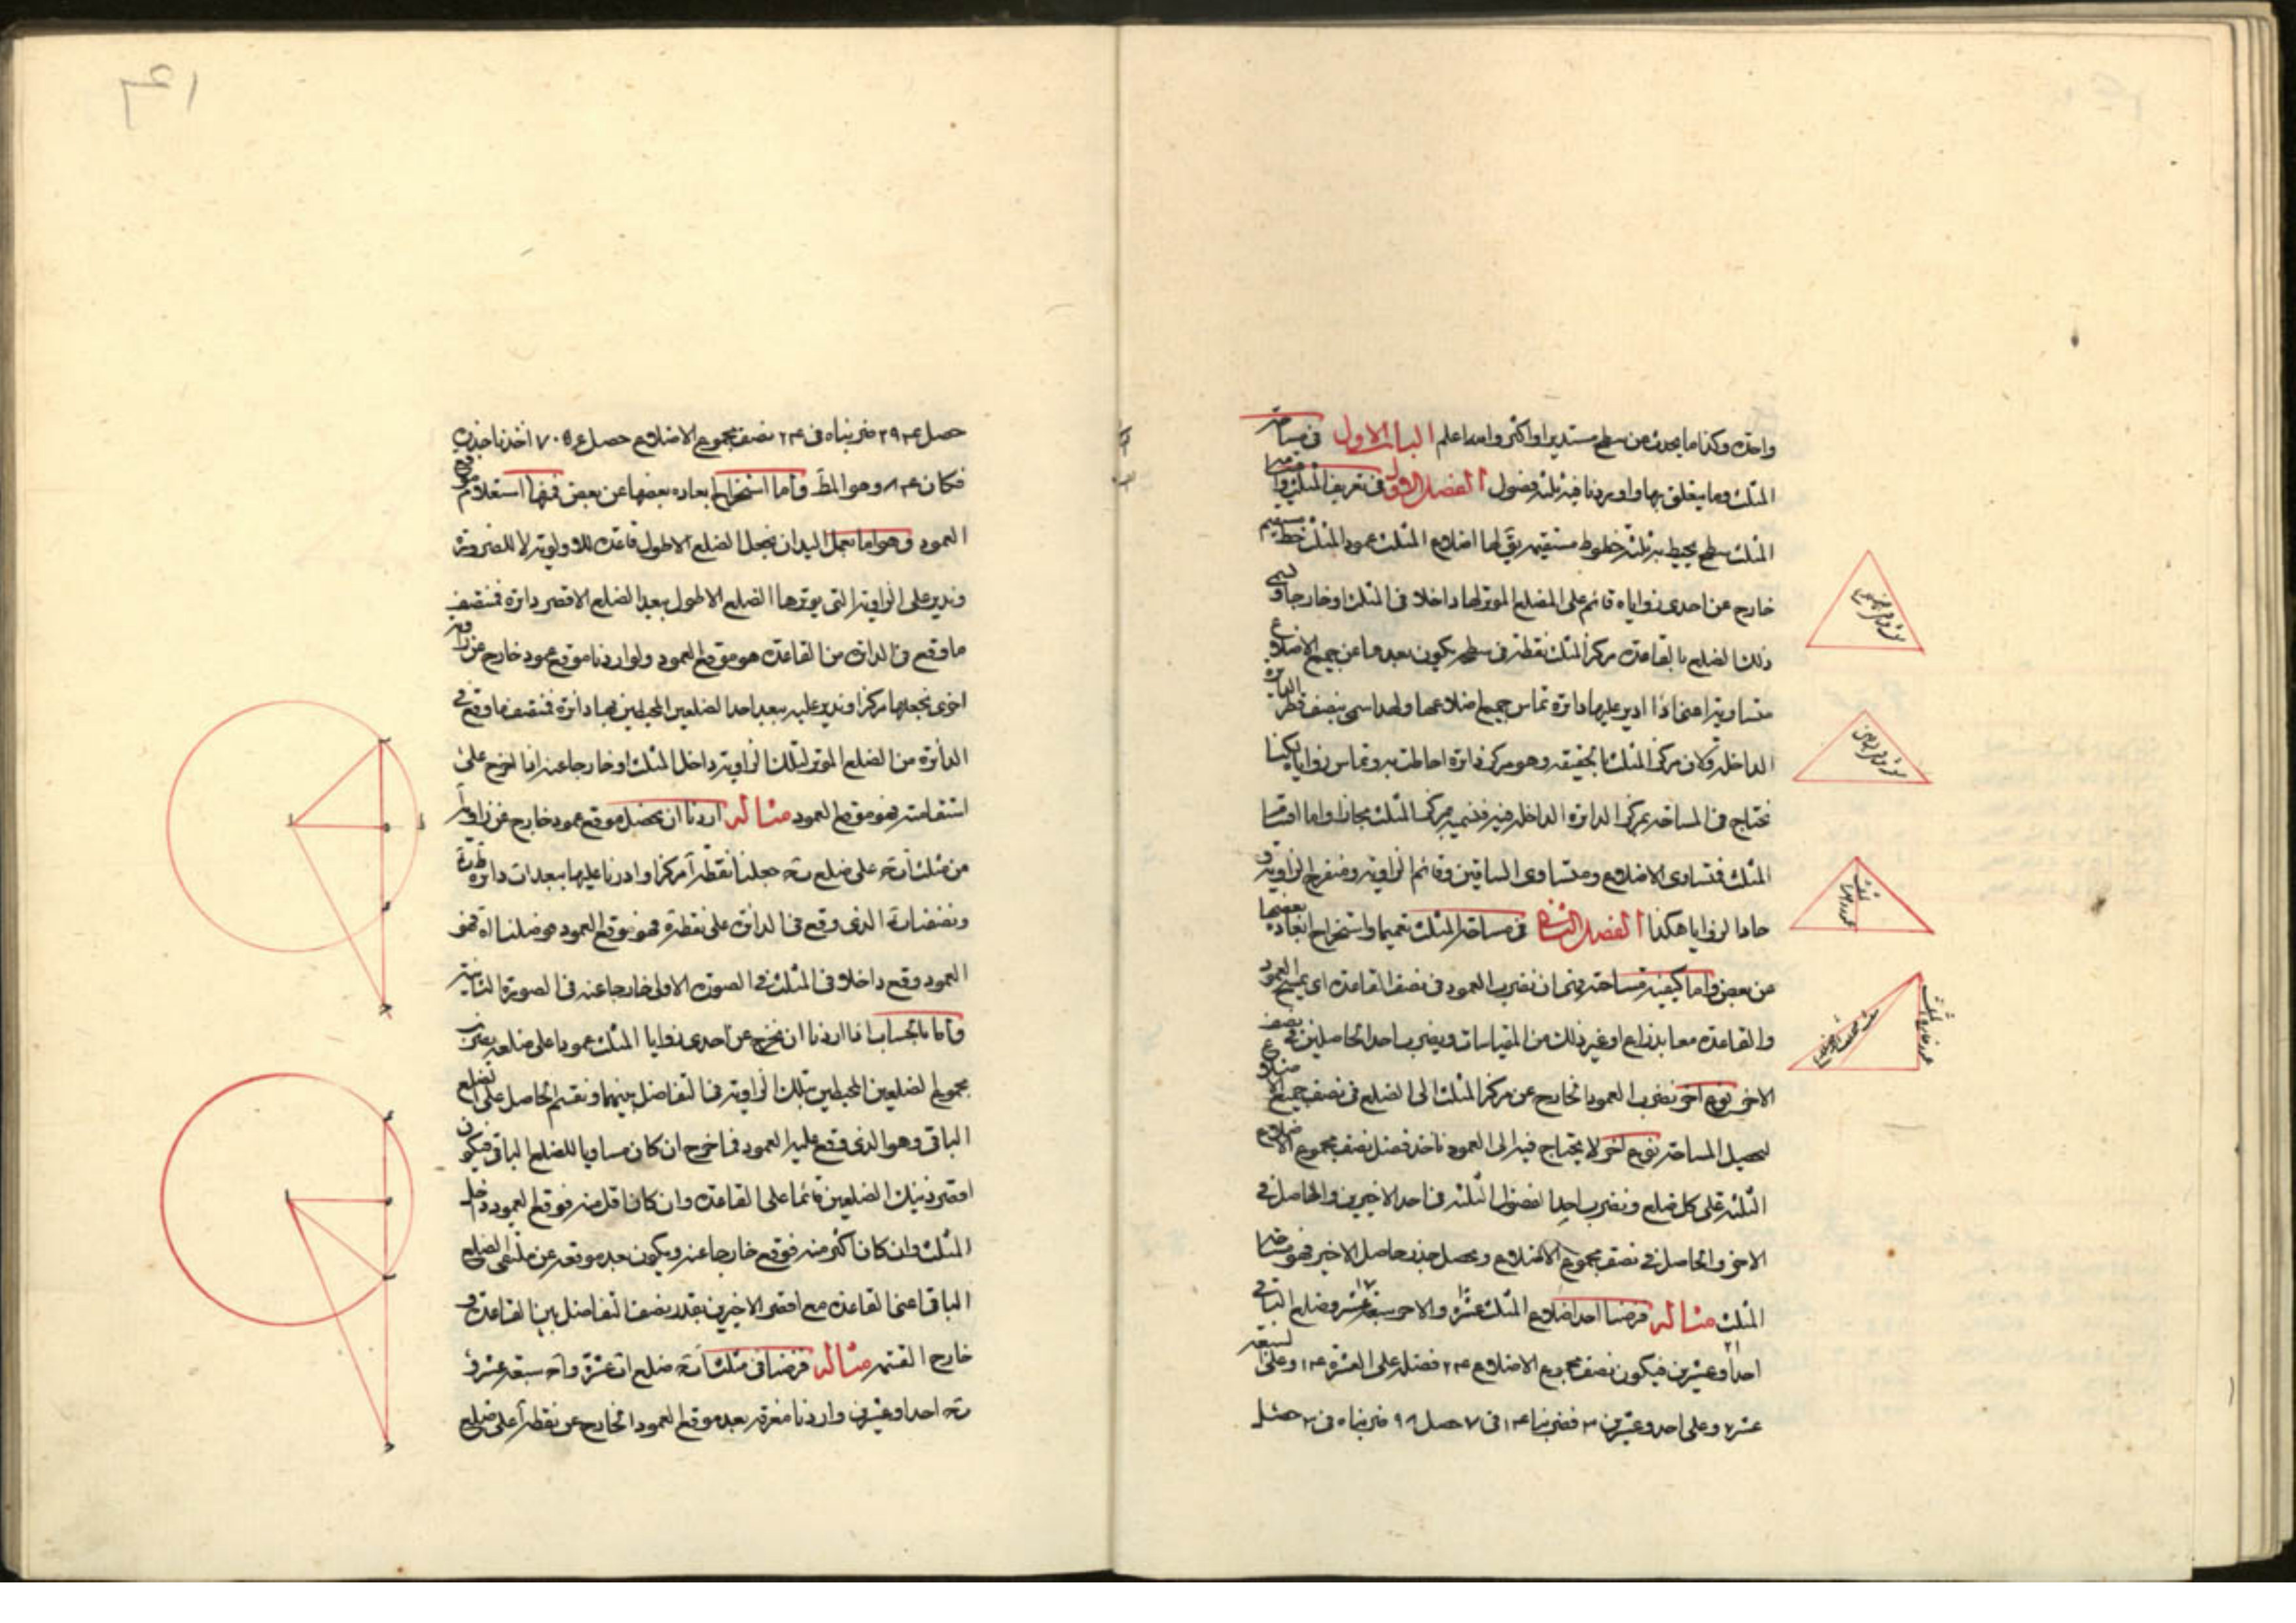 واحدة وكذا ما يحدث من سطح مستدير او اكثر والله اعلم الباب الاول في مساحة
المثلث وما يتعلق بها واوردنا فيه ثلثة فصول الفصل الاول في تعريف المثلث واقسامه
المثلث سطح يحيط به ثلثة خطوط مستقيمة يقال لها اضلاع المثلث عمود المثلث خط مستقيم
خارج من احدى زواياه قائم على الضلع الموتر لها داخلا في المثلث او خارجا وسمى
ذلك الضلع بالقاعدة مركز المثلث نقطة في سطحه يكون بعدها عن جميع الاضلاع
متساوية اعنى اذا ادير عليها دائرة تماس جميع اضلاعها ولهذا سمى بنصف قطر الدائرة
الداخلة وكان مركز المثلث بالحقيقة وهو مركز دائرة احاطت به وتماس زواياه لكنا
نحتاج في المساحة بمركز الدائرة الداخلة فيه فنسميه مركز المثلث مجازا واما اقسام
المثلث فمتساوى الاضلاع ومتساوى الساقين وقائم الزاوية ومنفرج الزاوية و
حاد الزوايا هكذا الفصل الثاني في مساحة المثلث تعميما واستخراج ابعاده بعضها
من بعض واما كيفية مساحته فهي ان نضرب العمود في نصف القاعدة اى يمسح العمود
والقاعدة معا بذراع او غير ذلك من المقياسات ويضرب احد الحاصلين في نصف
الاخر نوع آخر نضرب العمود الخارج عن مركز المثلث الى الضلع في نصف جميع الاضلاع
لتحصيل المساحة نوع آخر لا يحتاج فيه الى العمود ناخذ فضل نصف مجموع الاضلاع
الثلثة على كل ضلع ونضرب احد الفضول الثلثة في احد الاخيرين والحاصل في
الاخر والحاصل في نصف مجموع الاضلاع ونحصل جذر حاصل الاخير فهو مساحة
المثلث مثاله فرضنا احد اضلاع المثلث عشرة والاخر سبعة عشر وضلع الثالث
احدا وعشرين فيكون نصف مجموع الاضلاع ٢٤ فضله على العشرة ١٤ وعلى السبعة
عشر ٧ وعلى احد وعشرين ٣ فضربنا ١٤ في ٧ حصل ٩٨ ضربناه في ٣ حصل
٤١
حصل ٢٩٤ ضربناه في ٢٤ نصف مجموع الاضلاع حصل ٧٠٥٦ اخذنا جذره
فكان ٨٤ وهو المط واما استخراج ابعاده بعضها عن بعض فمنها استعلام موقع
العمود وهو اما بعمل اليد ان نجعل الضلع الاطول قاعدة للاولوية لا للضرورة
وندير على الزاوية التي يوترها الضلع الاطول ببعد الضلع الاقصر دائرة فمنتصف
ما وقع في الدائرة من القاعدة هو موقع العمود ولو اردنا موقع عمود خارج عن زاوية
اخرى نجعلها مركزا وندير عليه ببعد احد الضلعين المحيطين بها دائرة فمنتصف ما وقع في
الدائرة من الضلع الموتر لتلك الزاوية داخل المثلث او خارجا عنه اذا اخرج على
استقامته فهو موقع العمود مثاله اردنا ان نحصل موقع عمود خارج عن زاوية آ
من مثلث اب‍ه على ضلع ب‍ه جعلنا نقطة آ مركزا وادرنا عليها ببعد اب دائرة
ونصفنا الذى وقع في الدائرة على نقطة ه فهو موقع العمود فوصلنا اه فهو
العمود وقع داخلا في المثلث في الصورة الاولى خارجا عنه في الصورة الثانية
واما بالحساب اذا اردنا ان نخرج عن احدى زوايا المثلث عمودا على ضلعه نضرب
مجموع الضلعين المحيطين بتلك الزاوية في التفاضل بينهما ونقسم الحاصل على الضلع
الباقى وهو الذى وقع عليه العمود فما خرج ان كان مساويا للضلع الباقى فيكون
اقصر ذينك الضلعين قائما على القاعدة وان كان اقل منه فوقع العمود داخل
المثلث وان كان اكثر منه فوقع خارجا عنه ويكون بعد موقعه عن ملتقى الضلع
الباقى اعنى القاعدة مع اقصر الاخيرين بقدر نصف التفاضل بين القاعدة و
خارج القسمة مثاله فرضنا في مثلث ضلع اب عشرة و سبعة عشر و
احد وعشرين واردنا معرفة بعد موقع العمود الخارج عن نقطة آ على ضلع